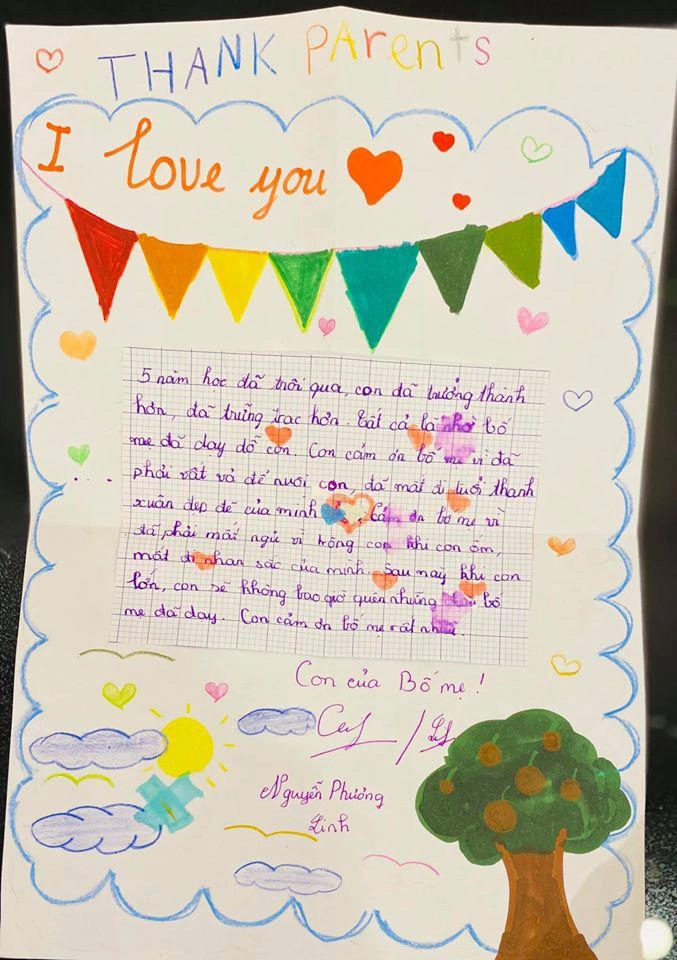 THANK PArents
I love you
5 năm học đã trôi qua, con đã trưởng thành
hơn, đã trững trạc hơn. Tất cả là nhờ bố
mẹ đã dạy dỗ con. Con cảm ơn bố mẹ vì đã
phải vất vả để nuôi con, đã mất đi tuổi thanh
xuân đẹp đẽ của mình. Cảm ơn bố mẹ vì
đã phải mất ngủ vì trông con khi con ốm,
mất đi nhan sắc của mình. Sau này khi con
lớn, con sẽ không bao giờ quên những bố
mẹ đã dạy. Con cảm ơn bố mẹ rất nhiều.
Con của Bố mẹ!
Nguyễn Phương
Linh